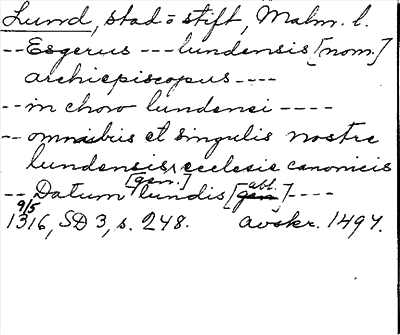 Lund, stad o stift, Malm. l.
-- Esgerus --- lundensis [nom.]
archiepiscopus ----
-- in choro lundensi ----
-- omnibus et singulis nostre
lundensis [gen.] ecclesie canonicis
-- Datum lundis [gen abl.] ----
9/5 1316, SD 3, s. 248. avskr. 1494.